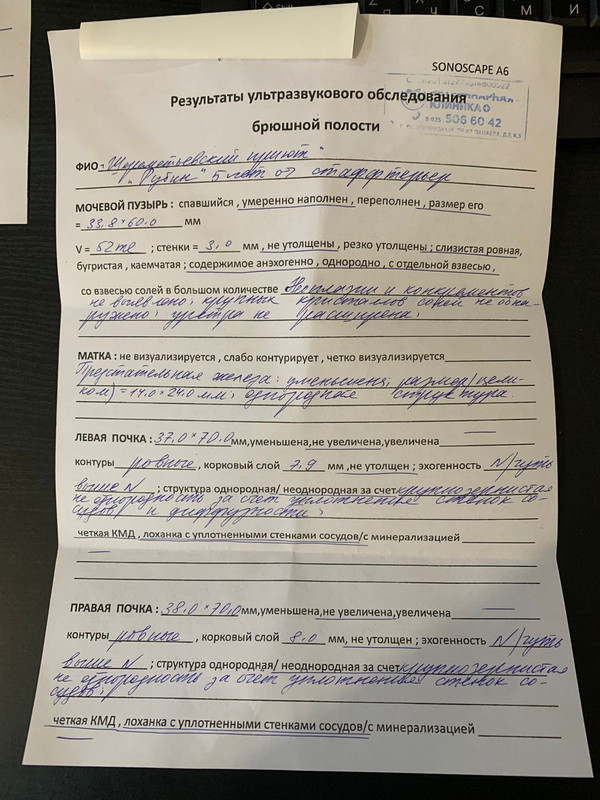 SONOSCAPE A6
КЛИНИКА
8 925 506 60 42
Результаты ультразвукового обследования
брюшной полости
ФИО - Шереметьевский приют"
"Рубин" 5 лет от стаффтерьер
МОЧЕВОЙ ПУЗЫРЬ : спавшийся , умеренно наполнен , переполнен , размер его
= 33,8 × 60.0 мм
V = 62 мл ; стенки = 3,0 мм , не утолщены , резко утолщены ; слизистая ровная,
бугристая , каемчатая ; содержимое анэхогенно , однородно , с отдельной взвесью ,
со взвесью солей в большом количестве Неоплазии и конкрементов
не выявлено; крупных кристаллов солей не обна-
ружено; уретра не расширена;
МАТКА : не визуализируется , слабо контурирует , четко визуализируется
Предстательная железа: уменьшена; размер /цели-
ком/ = 14.0 × 24.0 мм; однородная структура.
ЛЕВАЯ ПОЧКА : 37.0 × 70.0 мм,уменьшена,не увеличена,увеличена
контуры ровные , корковый слой 7,9 мм ,не утолщен ; эхогенность N/чуть
выше N ; структура однородная/ неоднородная за счет крупнозернистая
неоднородность за счет уплотнения стенок со-
судов и диффузности;
четкая КМД , лоханка с уплотненными стенками сосудов/с минерализацией
ПРАВАЯ ПОЧКА : 38.0 × 70.0 мм,уменьшена,не увеличена,увеличена
контуры ровные , корковый слой 8.0 мм, не утолщен ; эхогенность N/чуть
выше N ; структура однородная/ неоднородная за счет крупнозернистая
неоднородность за счет уплотнения стенок со-
судов;
четкая КМД , лоханка с уплотненными стенками сосудов/с минерализацией